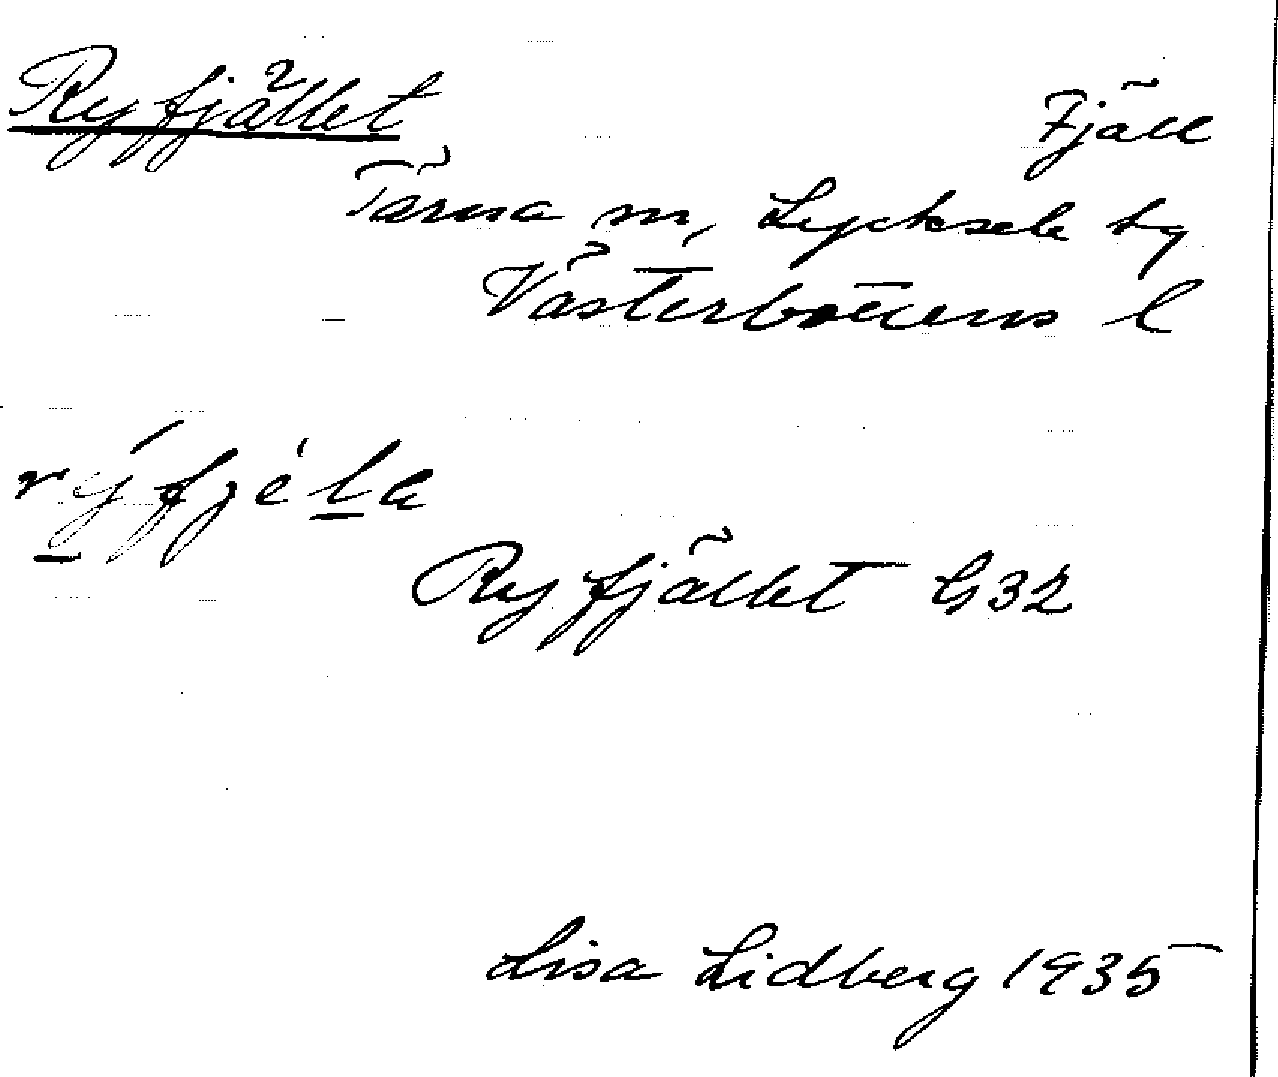 Ryfjället Fjäll
Tärna sn, Lycksele tg
Västerbottens l
rýfjèla
Ryfjället G32
Lisa Lidberg 1935